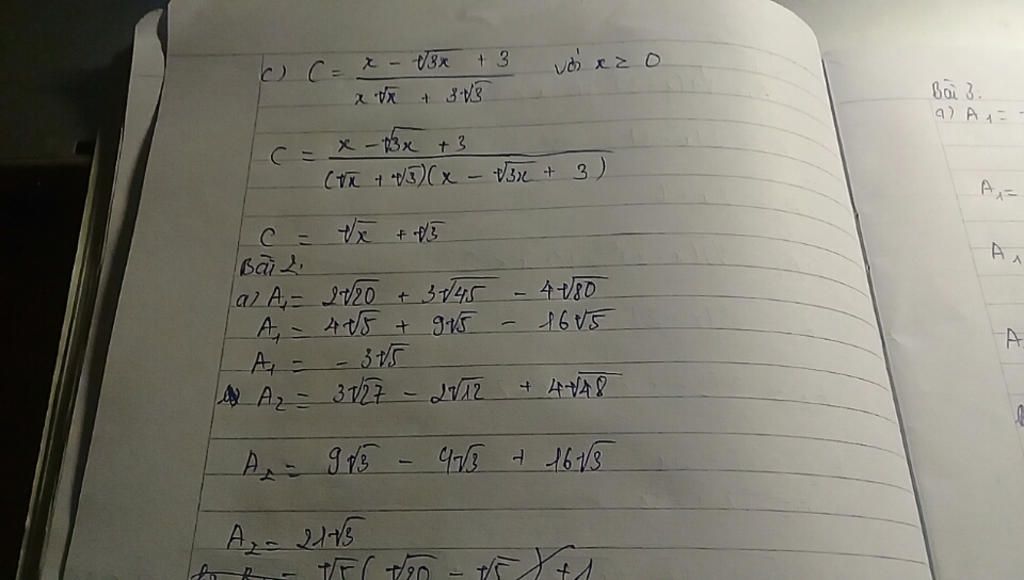 c) C = (x - √3x + 3)/(x√x + 3√3) với x ≥ 0
C = (x - √3x + 3)/((√x + √3)(x - √3x + 3))
C = √x + √3
Bài 2.
a) A₁ = 2√20 + 3√45 - 4√80
A₁ = 4√5 + 9√5 - 16√5
A₁ = - 3√5
A₂ = 3√27 - 2√12 + 4√48
A₂ = 9√3 - 4√3 + 16√3
A₂ = 21√3
= √5(√20 - √5) + 1
Bài 3.
a) A₁ =
A₁ =
A₁
A